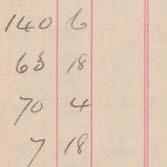 140 6
63 18
70 4
7 18